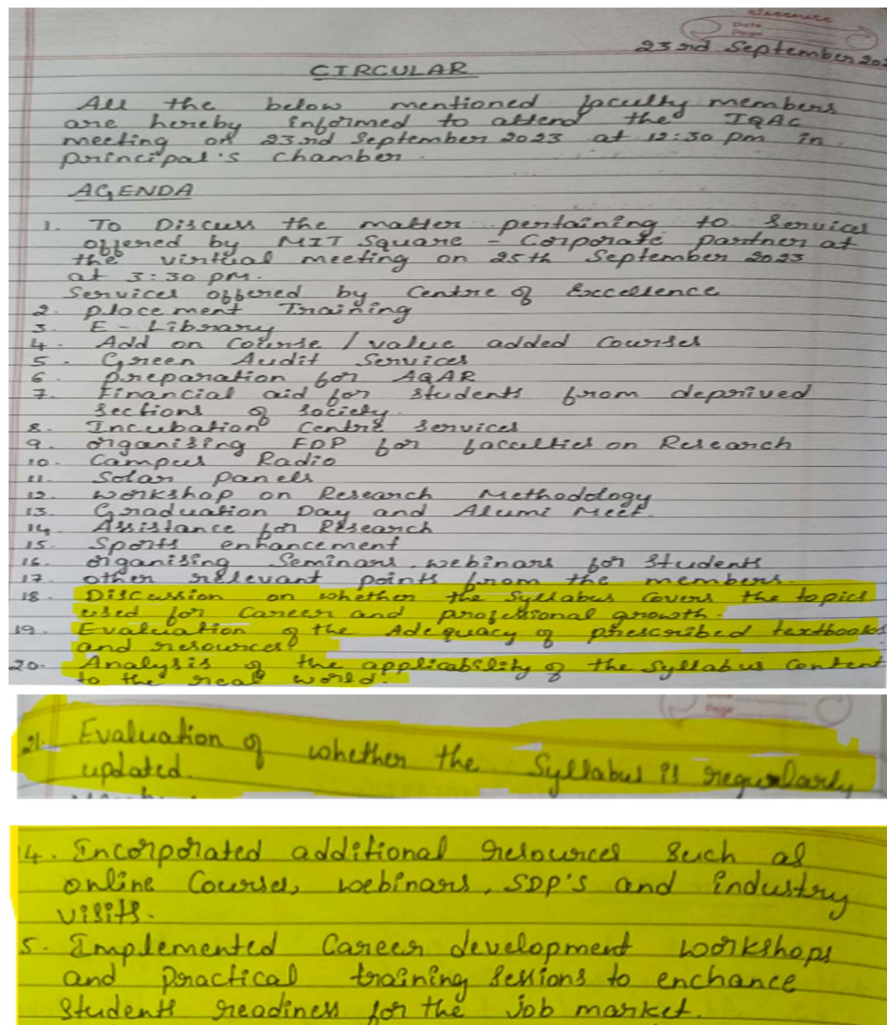 classmate
Date
Page
23rd September 202
CIRCULAR
All the below mentioned faculty members
are hereby informed to attend the IQAC
meeting on 23rd September 2023 at 12:30 pm in
principal's chamber.
AGENDA
1. To Discuss the matter pertaining to Services
offered by MIT Square - Corporate partner at
the virtual meeting on 25th September 2023
at 3:30 pm.
Services offered by Centre of Excellence
2. placement Training
3. E - Library
4. Add on course / value added courses
5. Green Audit Services
6. preparation for AQAR
7. Financial aid for students from deprived
sections of society.
8. Incubation Centre services
9. organising FDP for faculties on Research
10. Campus Radio
11. Solar panels
12. workshop on Research Methodology
13. Graduation Day and Alumi Meet.
14. Assistance for Research
15. Sports enhancement
16. organising Seminars, webinars for students
17. other relevant points from the members.
18. Discussion on whether the Syllabus covers the topics
used for career and professional growth.
19. Evaluation of the Adequacy of prescribed textbooks
and resources
20. Analysis of the applicability of the Syllabus content
to the real world.
Date
Page
21. Evaluation of whether the Syllabus is regularly
updated.
4. Incorporated additional resources such as
online Courses, webinars, SDP's and industry
visits.
5. Implemented Career development workshops
and practical training sessions to enchance
students readiness for the job market.